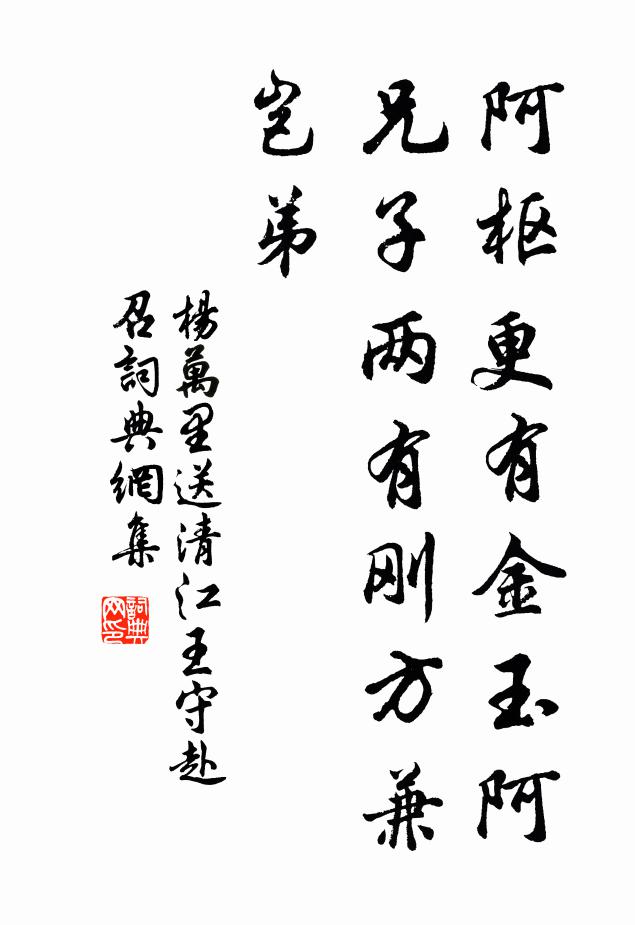 阿枢更有金玉阿
兄子两有刚方兼
岂弟
楊萬里送清江王守赴
召詞典網集
詞典
网印